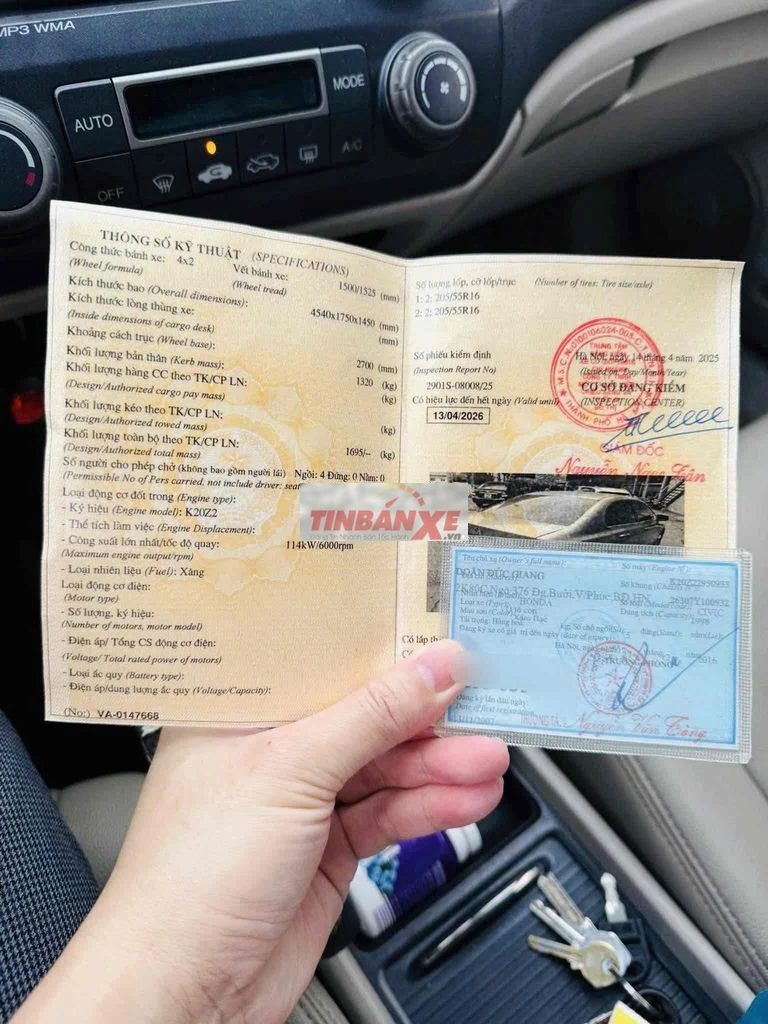 MP3 WMA
AUTO
MODE
OFF
A/C
THÔNG SỐ KỸ THUẬT (SPECIFICATIONS)
Công thức bánh xe: 4x2 Vết bánh xe: 1500/1525 (mm)
(Wheel formula) (Wheel tread)
Kích thước bao (Overall dimensions): 4540x1750x1450 (mm)
Kích thước lòng thùng xe: (mm)
(Inside dimensions of cargo desk)
Khoảng cách trục (Wheel base): 2700 (mm)
Khối lượng bản thân (Kerb mass): 1320 (kg)
Khối lượng hàng CC theo TK/CP LN: (kg)
(Design/Authorized cargo pay mass)
Khối lượng kéo theo TK/CP LN: (kg)
(Design/Authorized towed mass)
Khối lượng toàn bộ theo TK/CP LN: 1695/-- (kg)
(Design/Authorized total mass)
Số người cho phép chở (không bao gồm người lái) Ngồi: 4 Đứng: 0 Nằm: 0
(Permissible No of Pers carried, not include driver: seat
Loại động cơ đốt trong (Engine type):
- Ký hiệu (Engine model): K20Z2
- Thể tích làm việc (Engine Displacement):
- Công suất lớn nhất/tốc độ quay: 114kW/6000rpm
(Maximum engine output/rpm)
- Loại nhiên liệu (Fuel): Xăng
Loại động cơ điện:
(Motor type)
- Số lượng, ký hiệu:
(Number of motors, motor model)
- Điện áp/ Tổng CS động cơ điện:
(Voltage/ Total rated power of motors)
- Loại ắc quy (Battery type):
- Điện áp/dung lượng ắc quy (Voltage/Capacity):
(No:) VA-0147668
Số lượng lốp, cỡ lốp/trục (Number of tires: Tire size/axle)
1: 2; 205/55R16
2: 2; 205/55R16
Số phiếu kiểm định Hà Nội, ngày 14 tháng 4 năm 2025
(Inspection Report No) (Issued on: Day/Month/Year)
2901S-08008/25 CƠ SỞ ĐĂNG KIỂM
Có hiệu lực đến hết ngày (Valid until) (INSPECTION CENTER)
13/04/2026
GIÁM ĐỐC
TINBÁNXE.vn
Có lắp
Tên chủ xe (Owner's full name):
DOÃN ĐỨC GIANG
HONDA
CIVIC
Hà Nội,
2016
TRƯỞNG PHÒNG
Đăng ký lần đầu ngày:
Date of first registration
THƯỢNG TÁ